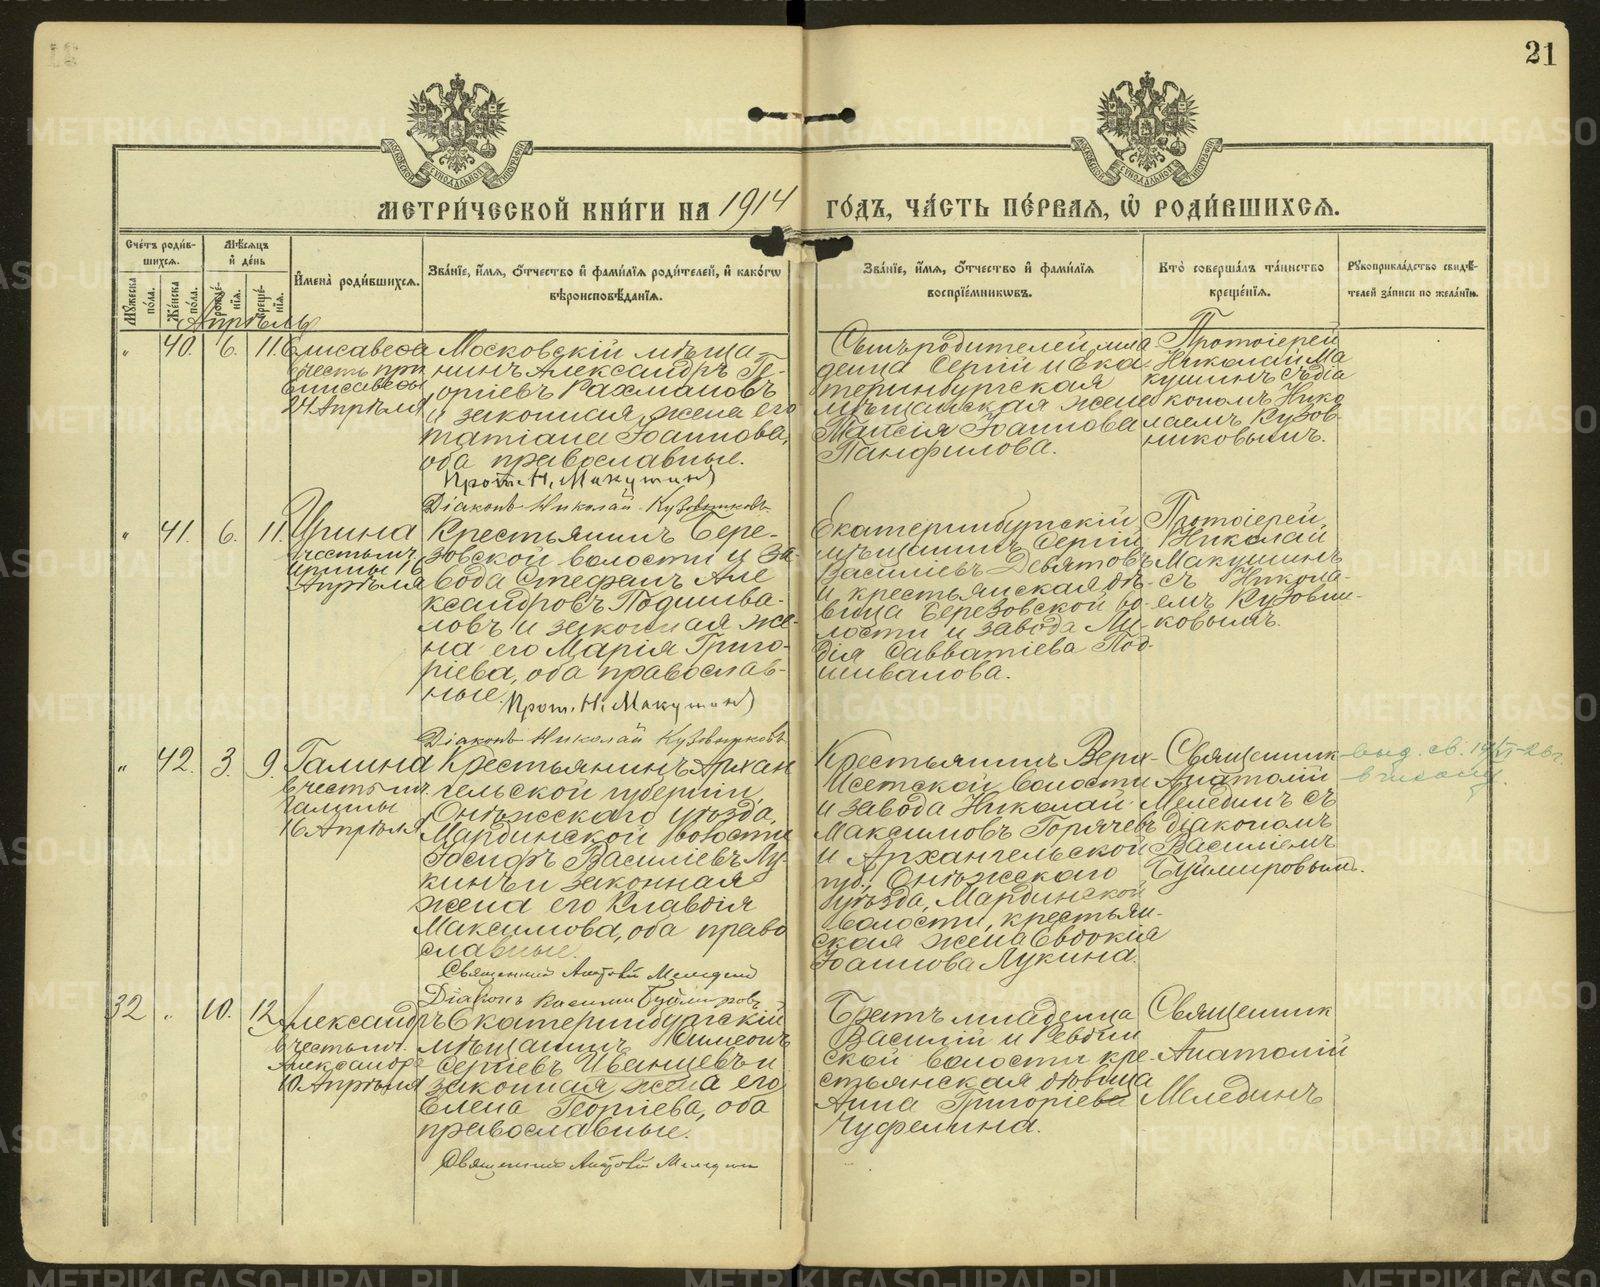 21
МЕТРИ́ЧЕСКОЙ КНИ́ГИ НА 1914 ГО́ДЪ, ЧА́СТЬ ПЕ́РВАЯ, Ѽ РОДИ́ВШИХСЯ.
Сче́тъ роди́в-
шихся.
Мѣ́сяцъ
и҆ де́нь
И҆мена̀ роди́вшихся.
Зва́нїе, и҆́мя, ѻ҆́тчество и҆ фами́лїя роди́телей, и҆ како́гѡ
вѣроисповѣ́данїя.
Зва́нїе, и҆́мя, ѻ҆́тчество и҆ фами́лїя
воспрїе́мникѡвъ.
Кто̀ соверша́лъ та́инство
креще́нїя.
Рꙋкоприкла́дство свидѣ́-
телей за́писи по жела́нїю.
Мꙋ́жеска
по́ла.
Же́нска
по́ла.
рожде́-
нїя.
креще́-
нїя.
Апрѣль
" 40. 6. 11. Елисавета
честь при
Елисаветы
24 Апрѣля
Московскій мѣща-
нинъ Александръ Ге-
оргіевъ Рахмановъ
и законная жена его
Татіана Іоаннова,
оба православные.
Прот. Н. Макушинъ
Діаконъ Николай Кузовниковъ
Сынъ родителей, мла
денца Сергій и Ека-
теринбургская
мѣщанская жена
Таисія Іоаннова
Панфилова.
Протоіерей
Николай Ма
кушинъ съ діа
кономъ Нико
лаемъ Кузов-
никовымъ.
" 41. 6. 11. Ирина
въ честь мч.
Ирины 16
Апрѣля
Крестьянинъ Бере-
зовской волости и за-
вода Стефанъ Але
ксандровъ Подшива-
ловъ и законная же-
на его Марія Григо-
ріева, оба православ-
ные.
Прот. Н. Макушинъ
Діаконъ Николай Кузовниковъ
Екатеринбургскій
мѣщанинъ Сергій
Василіевъ Девятовъ
и крестьянская дѣ-
вица Березовской во-
лости и завода Ли-
дія Савватіева Под-
шивалова.
Протоіерей
Николай
Макушинъ
съ Никола-
емъ Кузовни-
ковымъ.
" 42. 3. 9. Галина
въ честь мч.
Галины
16 Апрѣля
Крестьянинъ Архан
гельской губерніи,
Онѣжскаго уѣзда,
Мардинской волости
Іосифъ Василіевъ Лу-
кинъ и законная
жена его Клавдія
Максимова, оба право
славные.
Священникъ Анатолій Мелединъ
Діаконъ Василій Буймировъ
Крестьянинъ Верх-
Исетской волости
и завода Николай
Максимовъ Горячевъ
и Архангельской
губ., Онѣжскаго
уѣзда, Мардинской
волости, крестьян-
ская жена Евдокія
Іоаннова Лукина.
Священникъ
Анатолій
Мелединъ съ
діакономъ
Василіемъ
Буймировымъ.
выд. св.
32 " 10. 12. Александръ
въ честь мч.
Александра
10 Апрѣля
Екатеринбургскій
мѣщанинъ Симеонъ
Сергіевъ Иванцевъ и
законная жена его
Елена Георгіева, оба
православные.
Священникъ Анатолій Мелединъ
Братъ младенца
Василій и Ревдин
ской волости кре-
стьянская дѣвица
Анна Григоріева
Чуфелина.
Священник
Анатолій
Мелединъ